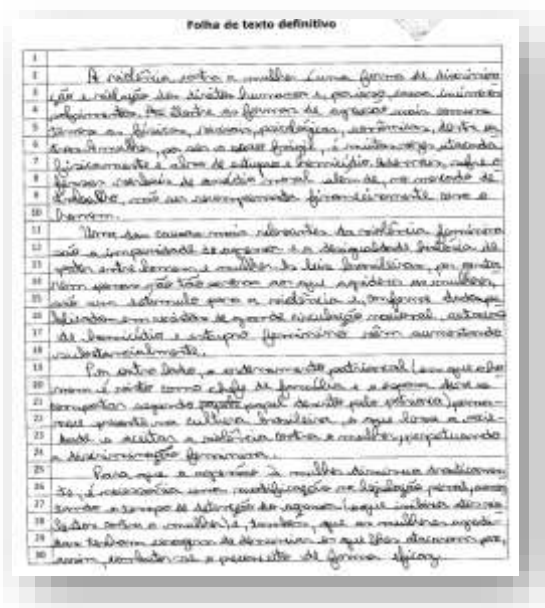 Folha de texto definitivo
1
2 A violência contra a mulher é uma forma de discrimina
3 ção e violação dos direitos humanos e, por isso, causa inúmeros
4 sofrimentos. Dentre as formas de agressão mais comuns
5 temos as físicas, sexuais, psicológicas, econômicas, dentre ou
6 tras. A mulher, por ser o sexo frágil, é muitas vezes atacada
7 fisicamente e alvo de estupro e homicídio. Ademais, sofre
8 verbais de assédio moral além de, no mercado de
9 trabalho, não ser recompensada financeiramente como o
10 homem.
11 Uma das causas mais relevantes da violência feminina
12 são a impunidade do agressor e a desigualdade histórica de
13 poder entre homem e mulher. As leis brasileiras, por
14 penas não tão severas ao que agridem as mulheres,
15 são um estímulo para a violência e, conforme dados pu
16 blicados em revistas de grande circulação nacional,
17 de homicídio e estupro feminino vêm aumentando
18 substancialmente.
19 Por outro lado, o ordenamento patriarcal (em que o ho
20 mem é visto como chefe de família e a esposa deve se
21 comportar segundo papel descrito pelo patriarca) perma
22 nece presente na cultura brasileira, o que leva a socie
23 dade a aceitar a violência contra a mulher, perpetuando
24 a discriminação feminina.
25 Para que a agressão à mulher diminua drasticamen
26 te, é necessária uma modificação na legislação penal, aumen
27 tando o tempo de detenção do agressor (o que inibiria
28 contra a mulher) e, também, que as mulheres agredi
29 das tenham coragem de denunciar os que lhes atacaram para,
30 assim, combater-se o preconceito de forma eficaz.